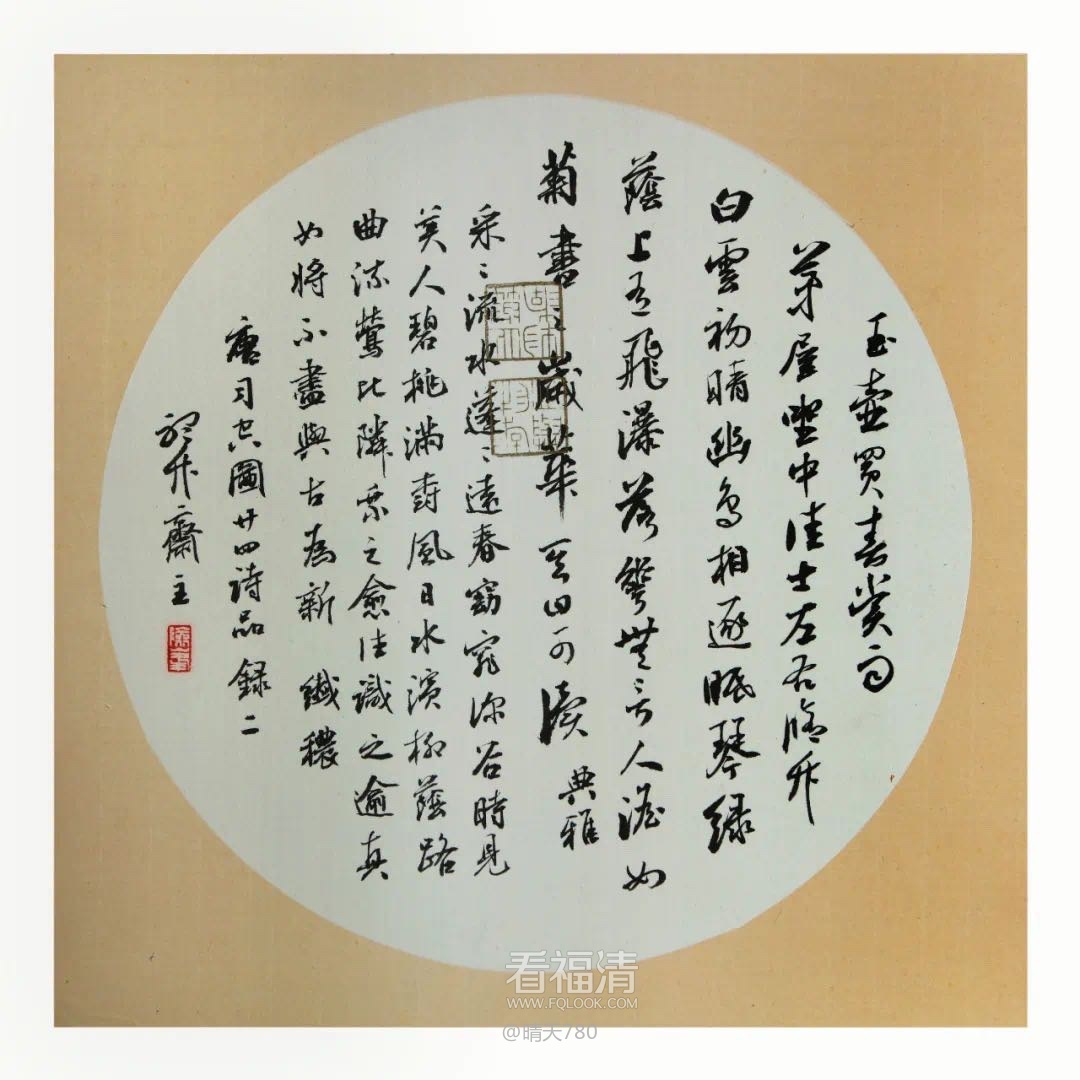 玉壺買春賞雨
茅屋坐中佳士左右脩竹
白雲初晴幽鳥相逐眠琴綠
蔭上有飛瀑落華無言人澹如
菊書之歲華其曰可讀 典雅
采〻流水蓬〻遠春窈窕深谷時見
美人碧桃滿樹風日水濱柳蔭路
曲流鶯比隣乘之愈往識之逾真
如將不盡與古為新 纖穠
唐司空圖廿四詩品錄二
竹齋主
看福清
WWW.FQLOOK.COM
@晴天780